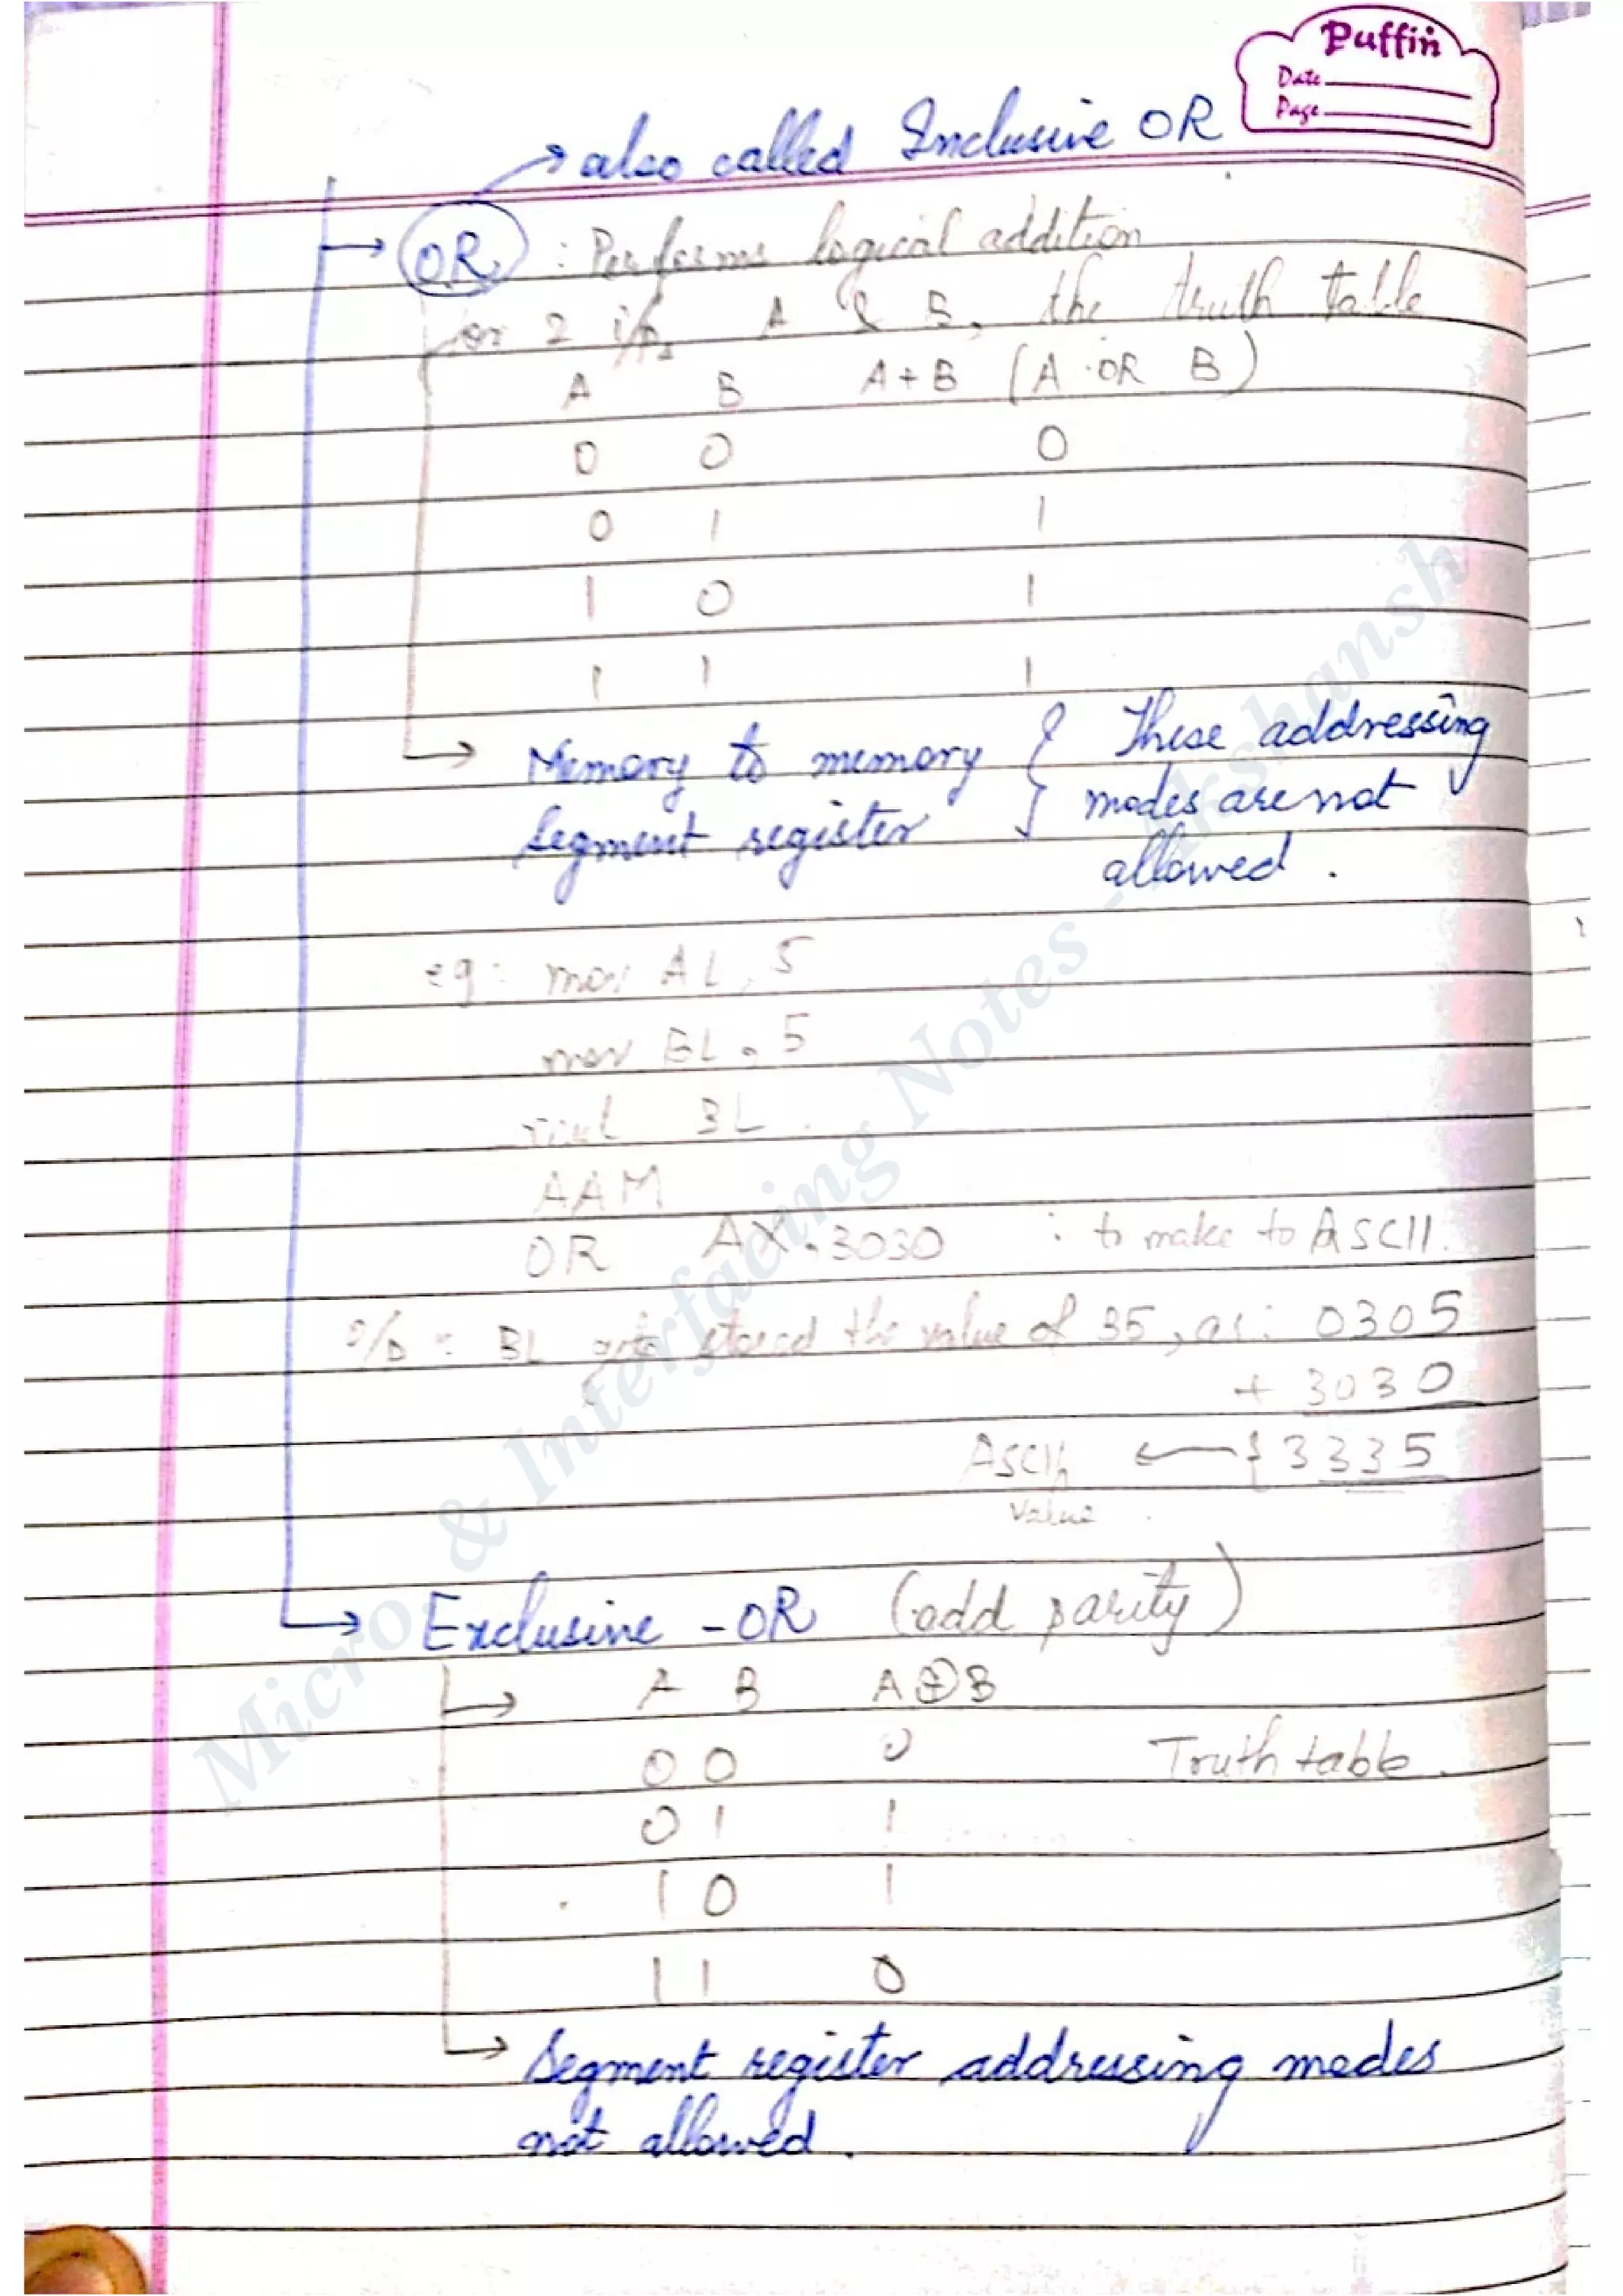 Puffin
Date
Page
→ also called Inclusive OR
→ OR : Performs logical addition
for 2 i/ps A & B, the truth table
A B A+B (A OR B)
0 0 0
0 1 1
1 0 1
1 1 1
→ Memory to memory } These addressing
segment register } modes are not
allowed.
eg: mov AL, 5
mov BL, 5
BL
AAM
OR AX, 3030 : to make to ASCII.
o/p : BL gets stored the value of 35, as: 0305
+ 3030
ASCII ← { 3335
value
→ Exclusive - OR (odd parity)
→ A B A⊕B
0 0 0 Truth table.
0 1 1
1 0 1
1 1 0
→ Segment register addressing modes
not allowed.
Micro. & Interfacing Notes - Akshansh